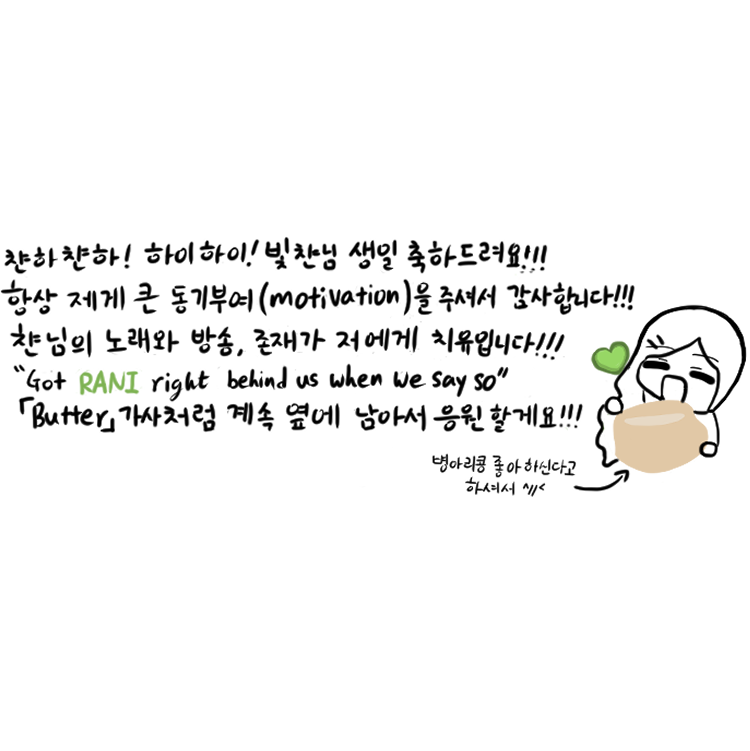 챤하챤하! 하이하이! 빛챤님 생일 축하드려요!!!
항상 제게 큰 동기부여(motivation)을 주셔서 감사합니다!!!
챤님의 노래와 방송, 존재가 저에게 치유입니다!!!
"Got RANI right behind us when we say so"
「Butter」가사처럼 계속 옆에 남아서 응원할게요!!!
병아리콩 좋아하신다고
하셔서 ^//^